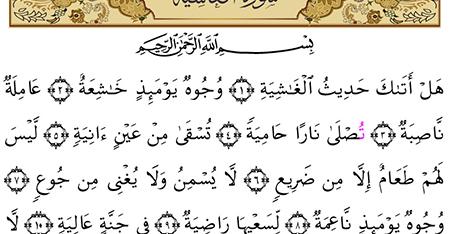 سورة الغاشية
بِسْمِ ٱللَّهِ ٱلرَّحْمَٰنِ ٱلرَّحِيمِ
هَلْ أَتَىٰكَ حَدِيثُ ٱلْغَٰشِيَةِ ﴿١﴾ وُجُوهٌ يَوْمَئِذٍ خَٰشِعَةٌ ﴿٢﴾ عَامِلَةٌ
نَّاصِبَةٌ ﴿٣﴾ تُصْلَىٰ نَارًا حَامِيَةً ﴿٤﴾ تُسْقَىٰ مِنْ عَيْنٍ ءَانِيَةٍ ﴿٥﴾ لَّيْسَ
لَهُمْ طَعَامٌ إِلَّا مِن ضَرِيعٍ ﴿٦﴾ لَّا يُسْمِنُ وَلَا يُغْنِى مِن جُوعٍ ﴿٧﴾
وُجُوهٌ يَوْمَئِذٍ نَّاعِمَةٌ ﴿٨﴾ لِّسَعْيِهَا رَاضِيَةٌ ﴿٩﴾ فِى جَنَّةٍ عَالِيَةٍ ﴿١٠﴾ لَّا